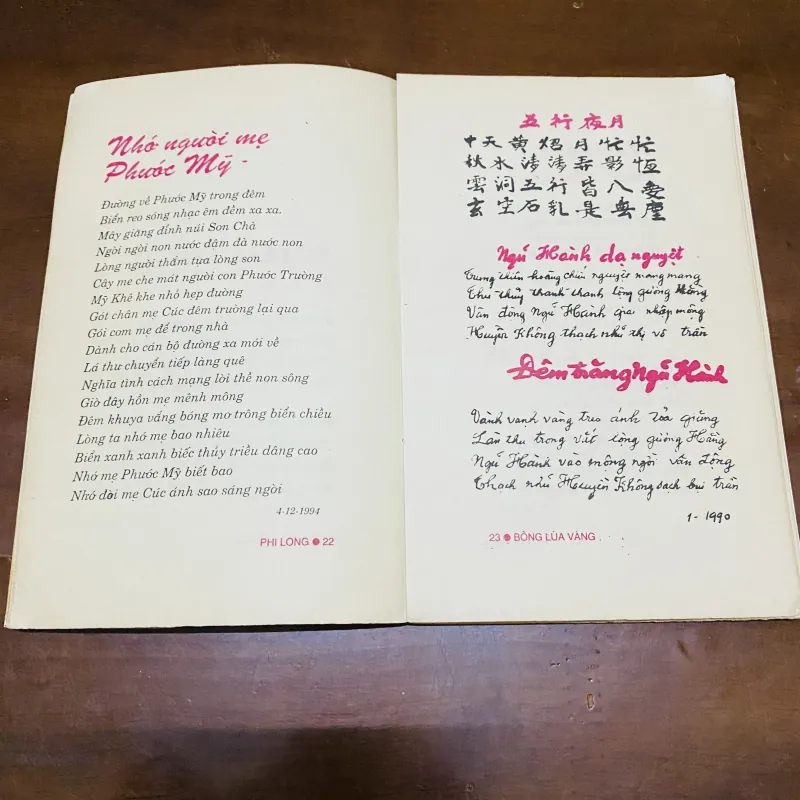 Nhớ người mẹ
Phước Mỹ -
Đường về Phước Mỹ trong đêm
Biển reo sóng nhạc êm đềm xa xa.
Mây giăng đỉnh núi Sơn Chà
Ngời ngời non nước đậm đà nước non
Lòng người thắm tựa lòng son
Cây me che mát người con Phước Trường
Mỹ Khê khe nhỏ hẹp đường
Gót chân mẹ Cúc đêm trường lại qua
Gói cơm mẹ để trong nhà
Dành cho cán bộ đường xa mới về
Lá thư chuyển tiếp làng quê
Nghĩa tình cách mạng lời thề non sông
Giờ đây hồn mẹ mênh mông
Đêm khuya vẳng bóng mơ trông biển chiều
Lòng ta nhớ mẹ bao nhiêu
Biển xanh xanh biếc thủy triều dâng cao
Nhớ mẹ Phước Mỹ biết bao
Nhớ đời mẹ Cúc ánh sao sáng ngời
4-12-1994
PHI LONG ● 22
五行夜月
中天黄炤月忙忙
秋水清清弄影恆
雲洞五行皆入
玄空石乳是無塵
Ngũ Hành dạ nguyệt
Trung thiên hoàng chiếu nguyệt mang mang
Thu thủy thanh thanh lộng gương Hằng
Vân động Ngũ Hành giai nhập mộng
Huyền Không thạch nhũ thị vô trần
Đêm trăng Ngũ Hành
Vành vạnh vàng treo ánh tỏa giăng
Làn thu trong vắt lộng gương Hằng
Ngũ Hành vào mộng ngời vân động
Thạch nhũ Huyền Không sạch bụi trần
1-1990
23 ● BÔNG LÚA VÀNG